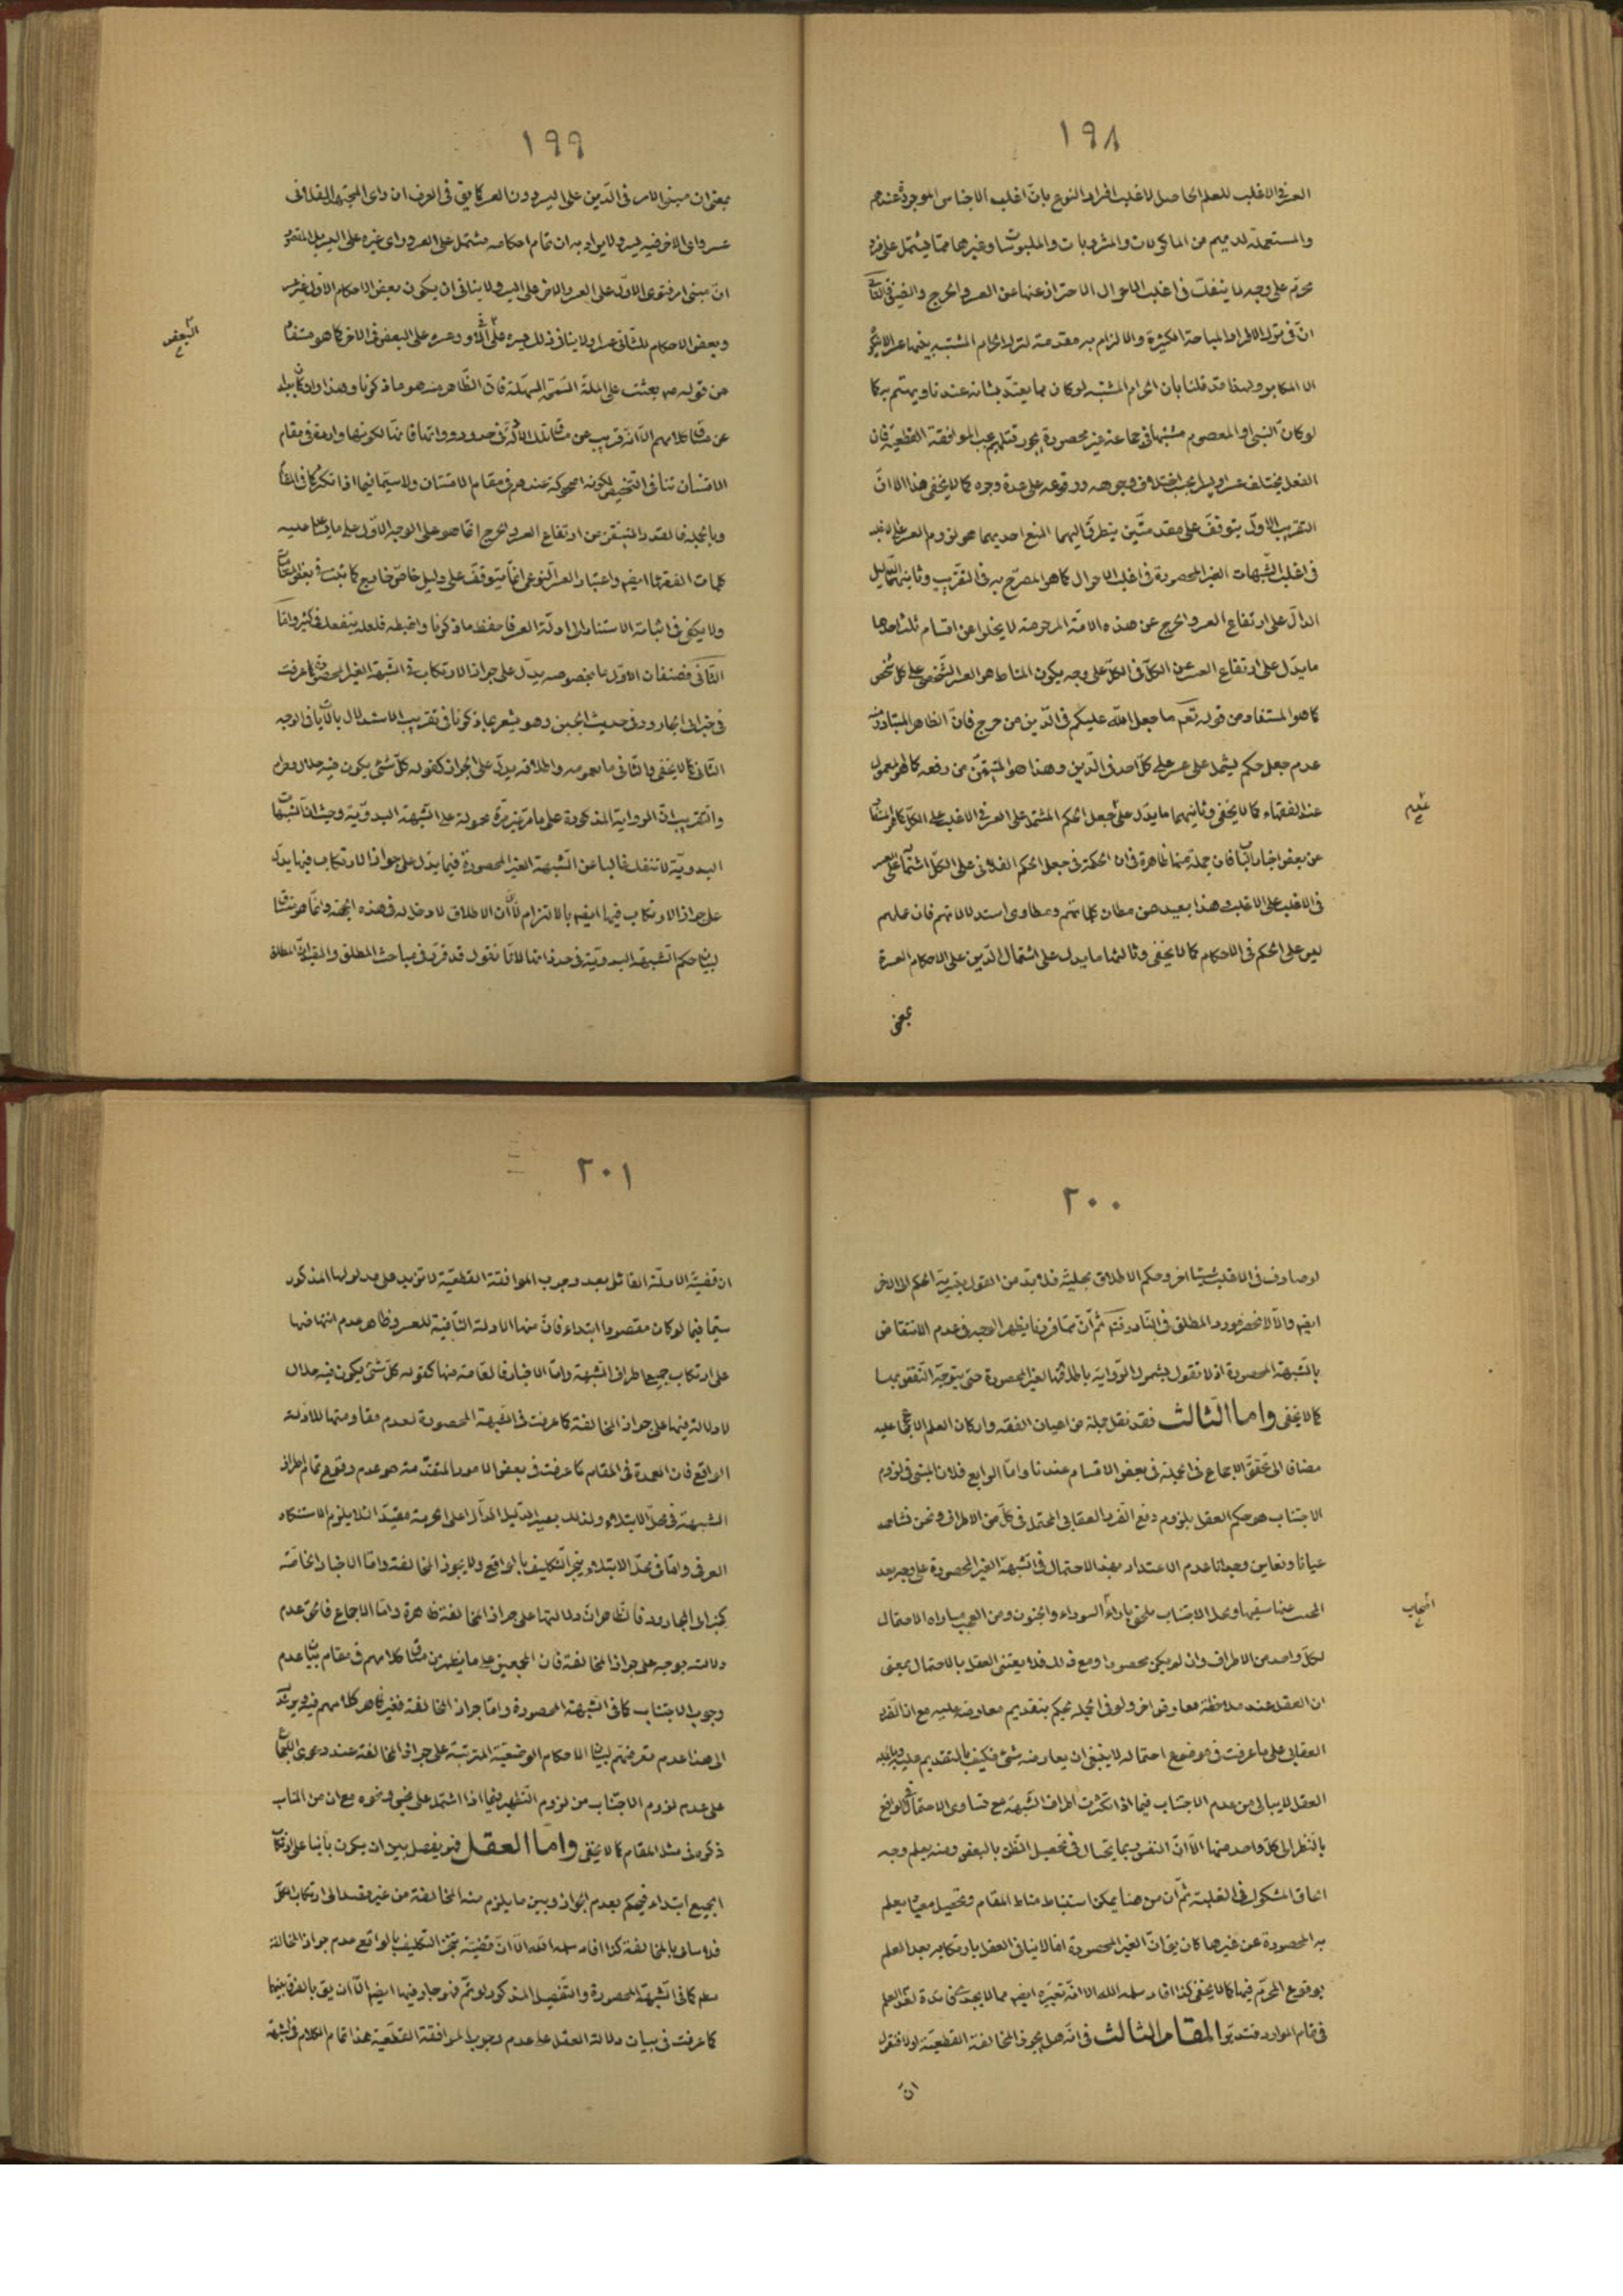 ١٩٨
العسر في الاغلب للعلم الحاصل لاغلب افراد النوع بان اغلب الاجناس الموجودة عندهم
والمستعملة لديهم من الماكولات والمشروبات والملبوسات وغيرها مما يشتمل على فرد
محرم على وجه لا ينفك في اغلب الاحوال الاحتراز عنها عن العسر والحرج والضيق
ان في ترك الافراد المباحة الكثيرة والالتزام به مقدمة لترك الحرام المشتبه بينها
الا المكابر ولهذا قد قلنا بان الحرام المشتبه لو كان مما يعتد بشانه عندنا ويهتم به كما
لو كان النبى او المعصوم مشتبها في جماعة غير محصورة يجوز قتلهم يجب الموافقة القطعية فان
الفعل يختلف عسرا ويسرا بحسب اختلاف وجوهه ووقوعه على عدة وجوه كما لا يخفى هذا الا ان
التقريب الاول يتوقف على مقدمتين يتطرق اليهما المنع احديهما هو لزوم العسر على الاغلب
في اغلب الشبهات الغير المحصورة في اغلب الاحوال كما هو المصرح به في التقريب وثانيهما الدليل
الدال على ارتفاع العسر والحرج عن هذه الامة المرحومة لا يخلوا عن اقسام ثلثة احدها
ما يدل على ارتفاع العسر عن الكل في الكل على وجه يكون المناط هو العسر الشخصي على كل شخص
كما هو المستفاد من قوله تعم ما جعل الله عليكم في الدين من حرج فان الظاهر المتبادر منه
عدم جعل حكم يشتمل على عسر على كل احد في الدين وهذا هو المتيقن من رفعه كما هو المعمول
عند الفقهاء كما لا يخفى وثانيهما ما يدل على جعل الحكم المشتمل على العسر في الاغلب على الكل كما هو المستفاد
عن بعض اخبار الباب فان جملة منها ظاهرة في ان الحكمة في جعل الحكم الفلاني على الكل اشتماله على العسر
في الاغلب على الاغلب وهذا بعيد عن مظان كلماتهم ومطاوى استدلالاتهم فان عملهم
ليس على الحكم في الاحكام كما لا يخفى وثالثها ما يدل على اشتمال الدين على الاحكام العسرة
بمعنى
١٩٩
بمعنى ان مبنى الامر في الدين على اليسر دون العسر كما يق في العرف ان راى المجتهد الفلاني
عسر وراى الاخر فيه يسر ولا يراد به ان تمام احكامه مشتمل على العسر وراى غيره على اليسر بل المقصود
ان مبنى امر فتوى الاول على العسر والاخر على اليسر ولا ينافي ان يكون بعض الاحكام الاول غير عسر
وبعض الاحكام للثاني عسرا ولا ينافي ذلك يسره على الاول وعسره على البعض في الاخر كما هو مستفاد
البعض
من قوله ص بعثت على الملة السمحة السهلة فان الظاهر منه هو ما ذكرنا وهذا وان كان بعيدا
عن مساق كلامهم الا انه قريب عن مساق تلك الادلة في حدود ذواتها فانها لكونها واردة في مقام
الامتنان تنافي التخصيص لكونه اضحوكة عندهم في مقام الامتنان ولا سيما فيما اذا تكثر كما في المقام
وبالجملة فالقدر المتيقن من ارتفاع العسر والحرج انما هو على الوجه الاول على ما يساعد عليه
كلمات الفقهاء ايضه واعتبار العسر النوعي انما يتوقف على دليل خاص خارج كما ثبت في بعض المقامات
ولا يكفى في اثباته الاستناد الى ادلة العسر فاحفظ ما ذكرنا واضبطه فلعله ينفعك في كثير واما
الثاني فصنفان الاول ما بخصوصه يدل على جواز الارتكاب في الشبهة الغير المحصورة كما عرفت
في خبر ابى الجارود في حديث الجبن وهو يشعر بما ذكرنا في تقريب الاستدلال بالايات في الوجه
الثاني كما لا يخفى والثاني ما بعمومه واطلاقه يدل على الجواز كقوله كل شئ يكون فيه حلال وحرام
والتقريب ان الرواية المذكورة على ما مر غير مرة محمولة على الشبهة البدوية وحيث ان الشبهات
البدوية لا تنفك غالبا عن الشبهة الغير المحصورة فيما يدل على جواز الارتكاب فيها يدل
على جواز الارتكاب فيها ايضه بالالتزام لا ان الاطلاق لا دخل له في هذه الجهة وانما هو مساق
لبيان حكم الشبهة البدوية في حد ذاتها لانا نقول قد قرر في مباحث المطلق والمقيد ان المطلق
٢٠٠
لو صادف في الاغلب شيئا اخر وحكم الاطلاق بحليته فلا بد من القول بتسرية الحكم الى الاخر
ايضه والا لانحصر مورد المطلق في النادر فتم ثم ان مما قررنا يظهر الوجه في عدم الانتقاض
بالشبهة المحصورة اذ لا نقول بشمول الرواية باطلاقها لغير المحصورة حتى يتوجه النقض بها
كما لا يخفى واما الثالث فقد نقل جملة من اعيان الفقه واركان العلم الاجماع عليه
مضافا الى تحقق الاجماع في الجملة في بعض الاقسام عندنا واما الرابع فلان المبنى في لزوم
الاجتناب هو حكم العقل بلزوم دفع الضرر العقابى المحتمل في كل من الاطراف ونحن نشاهد
عيانا ونعاين وجدانا عدم الاعتداد بهذا الاحتمال في الشبهة الغير المحصورة على وجه يعد
المجتنب عنها سفيها ويعد الاجتناب ملحق باداء السوداء والجنون ومن العجب مساواة الاحتمال
اصحاب
لكل واحد من الاطراف وان لم يكن محصورا ومع ذلك فلا يعتنى العقل بالاحتمال بمعنى
ان العقل عند ملاحظة معارض اخر ولو في الجملة يحكم بتقديم معارضه عليه مع ان الضرر
العقابى على ما عرفت في موضوع احتماله لا ينبغي ان يعارضه شئ فكيف بالتقديم عليه وبالجملة
العقل لا يبالى من عدم الاجتناب فيما اذا تكثرت اطراف الشبهة مع تساوى الاحتمال في الواقع
بالنظر الى كل واحد منها الا ان النفس ربما يحتال في تحصيل الظن بالبعض ومنه يعلم وجه
الحاق المشكوك في الغلبة ثم ان من هنا يمكن استنباط مناط المقام وتحصيل معيار يعلم
به المحصورة عن غيرها كان يق ان الغير المحصورة ما لا ينافي العقل بارتكابه بعد العلم
بوقوع المحرم فيها كما لا يخفى كذا افاد سلمه الله الا انه بتغييره ايضه مما لا يجدى في مادة لعدم العلم
في تمام الموارد فتدبر المقام الثالث في انه هل يجوز المخالفة القطعية اولا فنقول
ان
٢٠١
ان قضية الادلة القائل بعدم وجوب الموافقة القطعية لا تزيد على مدلولها المذكور
سيما فيما لو كان مقصودا ابتداء فان منها الادلة النافية للعسر وظاهر عدم انتهاضها
على ارتكاب جميع اطراف الشبهة واما الاخبار فالعامة منها كقوله كل شئ يكون فيه حلال
لا دلالة فيها على جواز المخالفة كما عرفت في الشبهة المحصورة لعدم مقاومتها للادلة
الواقع فان العمدة في المقام كما عرفت في بعض الامور المتقدمة هو عدم وقوع تمام اطراف
الشبهة في محل الابتلاء ولذلك يصير الدليل الدال على الحرمة مقيدا لئلا يلزم الاستنكار
العرفى واما في محل الابتلاء ينجز التكليف بالواقع ولا يجوز المخالفة واما الاخبار الخاصة
كخبر ابى الجارود فالظاهر ان دلالتها على جواز المخالفة ظاهرة واما الاجماع فالحق عدم
دلالته بوجه على جواز المخالفة فان المجمعين على ما يظهر من مساق كلامهم في مقام بيان عدم
وجوب الاجتناب كما في الشبهة المحصورة واما جواز المخالفة فغير ظاهر كلامهم فيه ويرشد
الى هذا عدم تعرضهم لبيان الاحكام الوضعية المترتبة على جواز المخالفة عند دعوى الاجماع
على عدم لزوم الاجتناب من لزوم التطهير فيما اذا اشتمل على نجس ونحوه مع ان من المناسب
ذكره في مثل المقام كما لا يخفى واما العقل فهو يفصل بين ان يكون بانيا على ارتكاب
الجميع ابتداء فيحكم بعدم الجواز وبين ما يلزم منه المخالفة من غير قصد الى ارتكاب الكل
فلا باس بالمخالفة كذا افاد سلمه الله الا ان قضية تنجز التكليف بالواقع عدم جواز المخالفة
معلم كما في الشبهة المحصورة والتفصيل المذكور لو تم فهو جار فيها ايضه الا ان يق بالفرق بينهما
كما عرفت في بيان دلالة العقل على عدم وجوب الموافقة القطعية هذا تمام الكلام في الشبهة